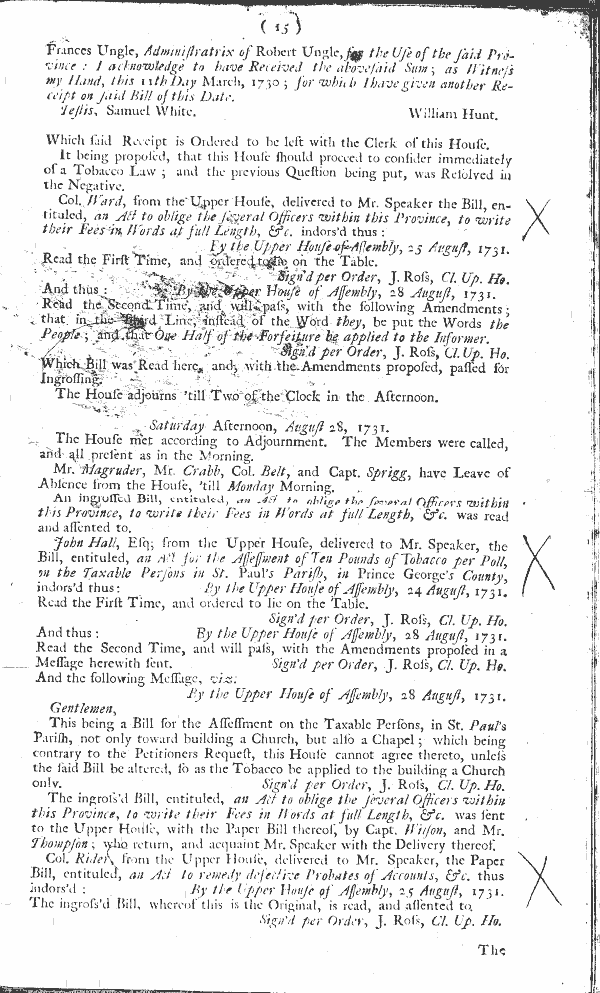 ( 15 )
Frances Ungle, Adminiſtratrix of Robert Ungle, for the Uſe of the ſaid Pro-
vince : I acknowledge to have Received the aboveſaid Sum; as Witneſs
my Hand, this 11th Day March, 1730; for which I have given another Re-
ceipt on ſaid Bill of this Date.
Teſtis, Samuel White. William Hunt.
Which ſaid Receipt is Ordered to be left with the Clerk of this Houſe.
It being propoſed, that this Houſe ſhould proceed to conſider immediately
of a Tobacco Law; and the previous Queſtion being put, was Reſolved in
the Negative.
Col. Ward, from the Upper Houſe, delivered to Mr. Speaker the Bill, en-
tituled, an Act to oblige the ſeveral Officers within this Province, to write
their Fees in Words at full Length, &c. indors'd thus :
By the Upper Houſe of Aſſembly, 25 Auguſt, 1731.
Read the Firſt Time, and ordered to lie on the Table.
Sign'd per Order, J. Roſs, Cl. Up. Ho.
And thus : By the Upper Houſe of Aſſembly, 28 Auguſt, 1731.
Read the Second Time, and will paſs, with the following Amendments;
that in the Third Line, inſtead of the Word they, be put the Words the
People; and that One Half of the Forfeiture be applied to the Informer.
Sign'd per Order, J. Roſs, Cl. Up. Ho.
Which Bill was Read here, and, with the Amendments propoſed, paſſed for
Ingroſſing.
The Houſe adjourns 'till Two of the Clock in the Afternoon.
Saturday Afternoon, Auguſt 28, 1731.
The Houſe met according to Adjournment. The Members were called,
and all preſent as in the Morning.
Mr. Magruder, Mr. Crabb, Col. Belt, and Capt. Sprigg, have Leave of
Abſence from the Houſe, 'till Monday Morning.
An ingroſſed Bill, entituled, an Act to oblige the ſeveral Officers within
this Province, to write their Fees in Words at full Length, &c. was read
and aſſented to.
John Hall, Eſq; from the Upper Houſe, delivered to Mr. Speaker, the
Bill, entituled, an Act for the Aſſeſſment of Ten Pounds of Tobacco per Poll,
on the Taxable Perſons in St. Paul's Pariſh, in Prince George's County,
indors'd thus : By the Upper Houſe of Aſſembly, 24 Auguſt, 1731.
Read the Firſt Time, and ordered to lie on the Table.
Sign'd per Order, J. Roſs, Cl. Up. Ho.
And thus : By the Upper Houſe of Aſſembly, 28 Auguſt, 1731.
Read the Second Time, and will paſs, with the Amendments propoſed in a
Meſſage herewith ſent. Sign'd per Order, J. Roſs, Cl. Up. Ho.
And the following Meſſage, viz.
By the Upper Houſe of Aſſembly, 28 Auguſt, 1731.
Gentlemen,
This being a Bill for the Aſſeſſment on the Taxable Perſons, in St. Paul's
Pariſh, not only toward building a Church, but alſo a Chapel; which being
contrary to the Petitioners Requeſt, this Houſe cannot agree thereto, unleſs
the ſaid Bill be altered, ſo as the Tobacco be applied to the building a Church
only. Sign'd per Order, J. Roſs, Cl. Up. Ho.
The ingroſs'd Bill, entituled, an Act to oblige the ſeveral Officers within
this Province, to write their Fees in Words at full Length, &c. was ſent
to the Upper Houſe, with the Paper Bill thereof, by Capt. Wilſon, and Mr.
Thompſon; who return, and acquaint Mr. Speaker with the Delivery thereof.
Col. Rider, from the Upper Houſe, delivered to Mr. Speaker, the Paper
Bill, entituled, an Act to remedy defective Probates of Accounts, &c. thus
indors'd : By the Upper Houſe of Aſſembly, 25 Auguſt, 1731.
The ingroſs'd Bill, whereof this is the Original, is read, and aſſented to.
Sign'd per Order, J. Roſs, Cl. Up. Ho.
The